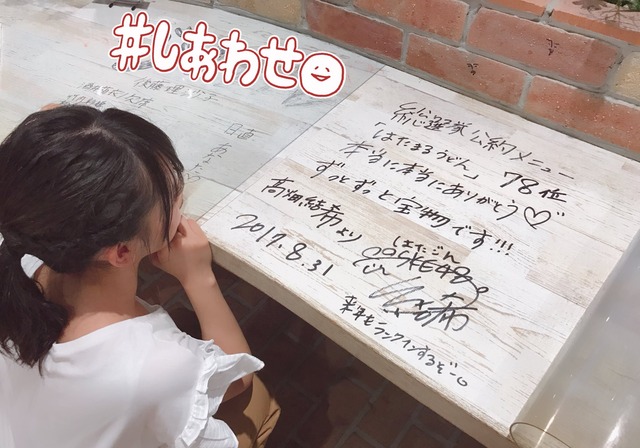 #しあわせ
後藤理沙子
日直
総選挙公約メニュー
「はたまるうどん」 78位
本当に本当にありがとう♡
ずっとずっと宝物です!!!
高畑結希より
はたごん
SKE48
2017.8.31
来年もランクインするぞー。